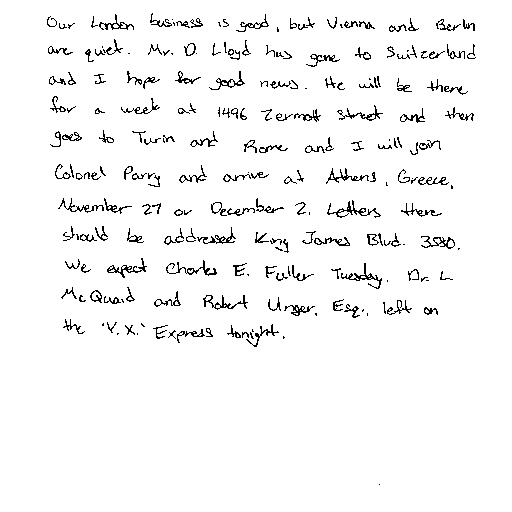 Our London business is good, but Vienna and Berlin
are quiet. Mr. D. Lloyd has gone to Switzerland
and I hope for good news. He will be there
for a week at 1496 Zermott Street and then
goes to Turin and Rome and I will join
Colonel Parry and arrive at Athens, Greece,
November 27 or December 2. Letters there
should be addressed King James Blvd. 3580.
We expect Charles E. Fuller Tuesday. Dr. L
McQuaid and Robert Unger, Esq., left on
the 'Y.X.' Express tonight.